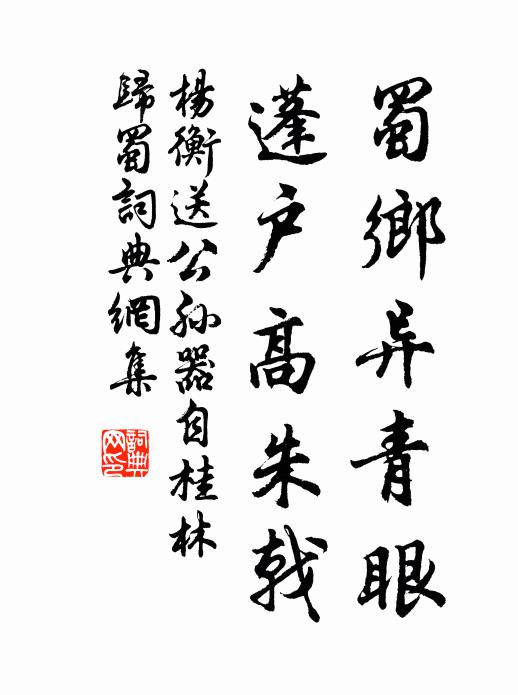 蜀鄉异青眼
蓬户高朱戟
楊衡送公孫器自桂林
歸蜀詞典網集
詞典
网印